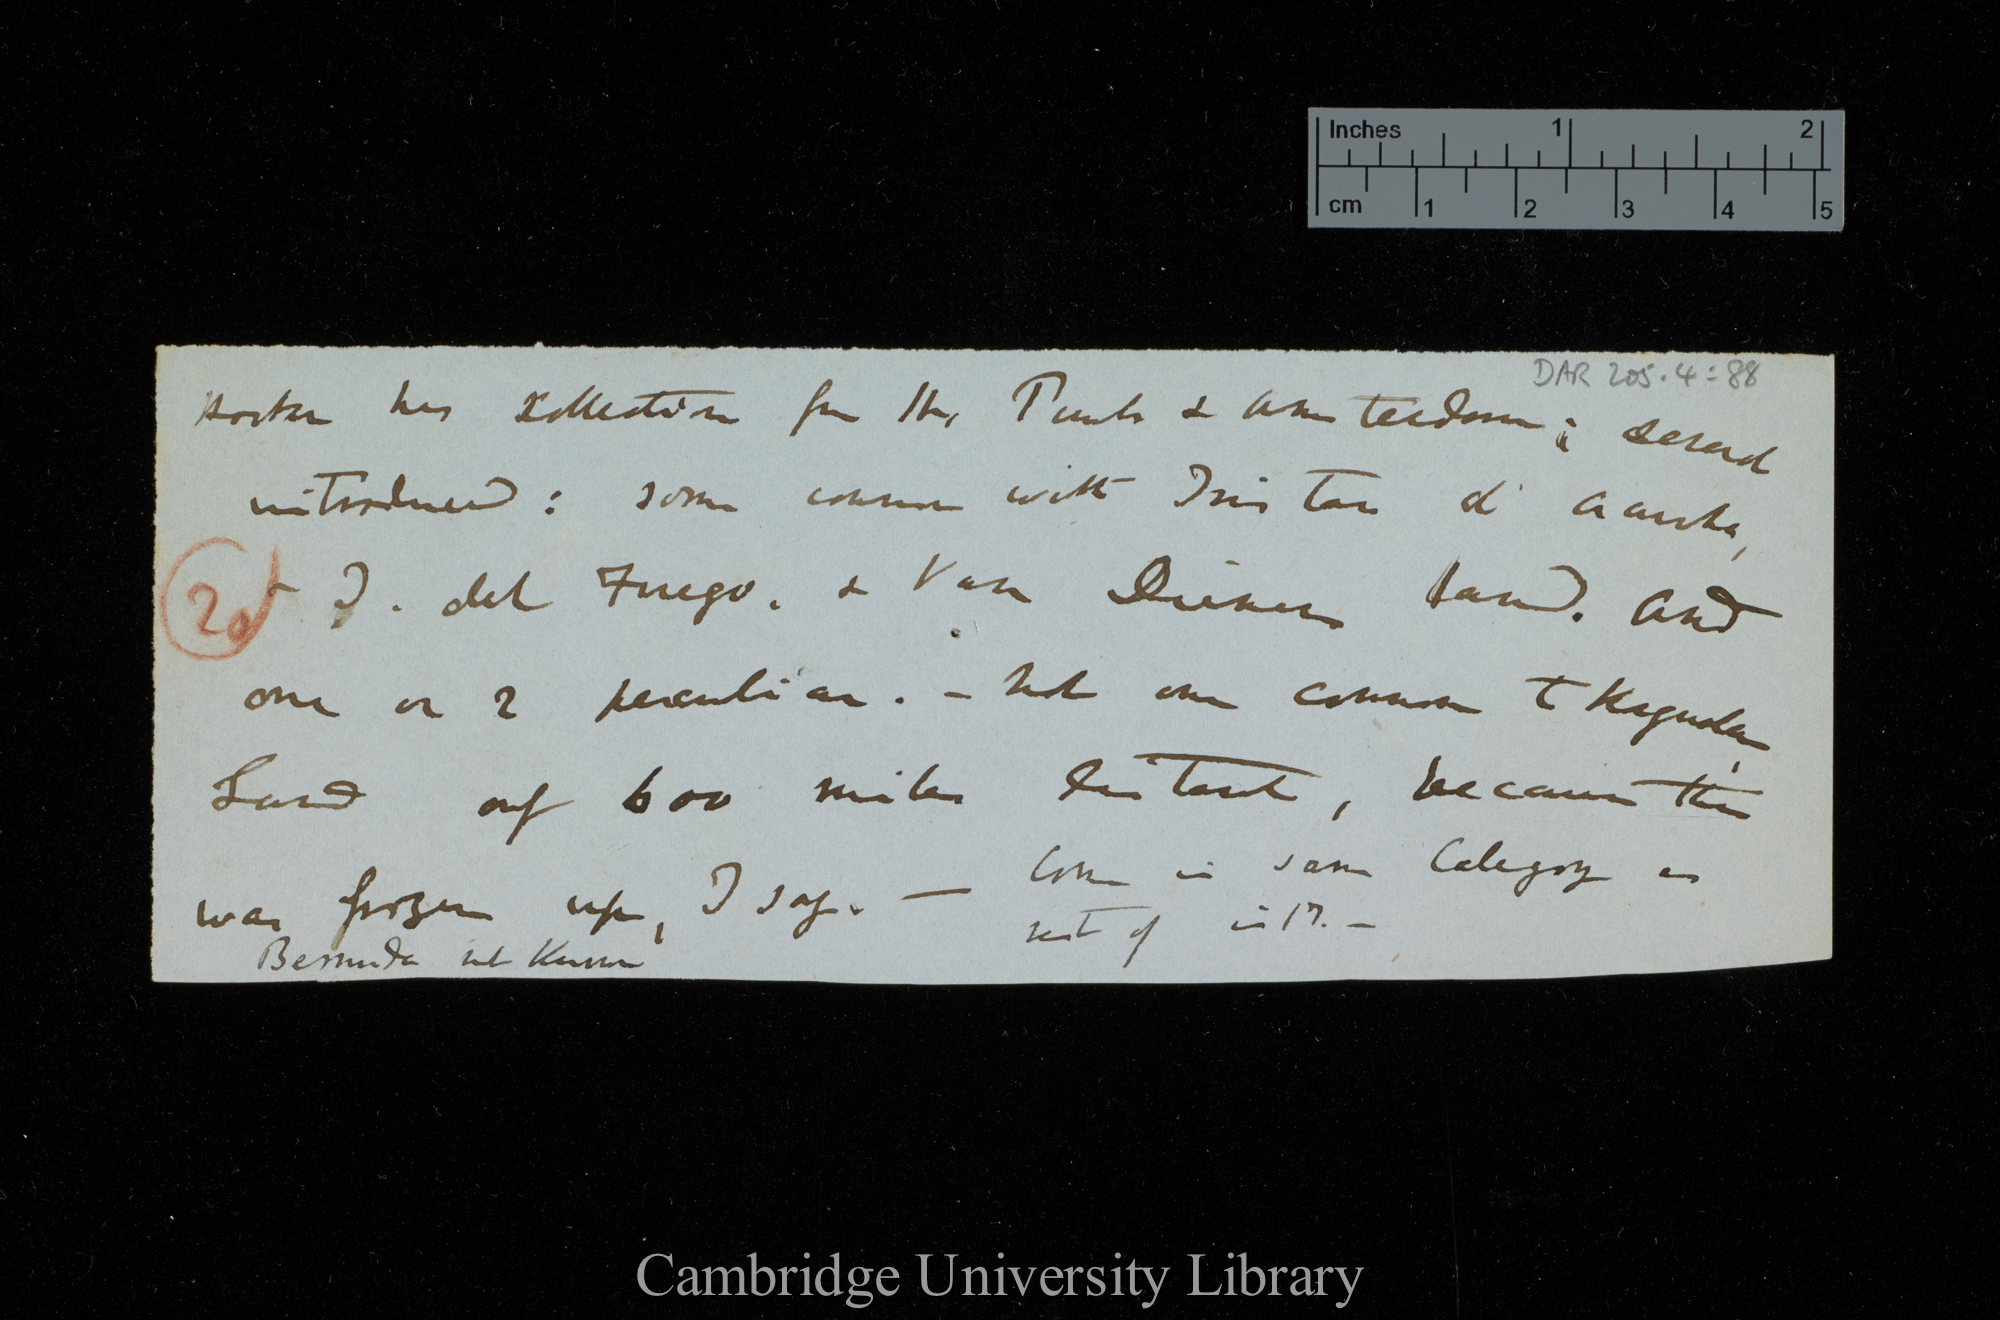 Inches 1 2
cm 1 2 3 4 5
DAR 205.4:88
Hooker has collection from St. Pauls & Amsterdam; several
introduced: some common with Tristan d' Acunha,
20
& T. del Fuego. & Van Diemen Land. And
one or 2 peculiar. — Not one common to Kerguelen
Land only 600 miles distant, because this
was frozen up, I say. —
Come in same Category as
rest of in 17. —
Bermuda not Known
Cambridge University Library